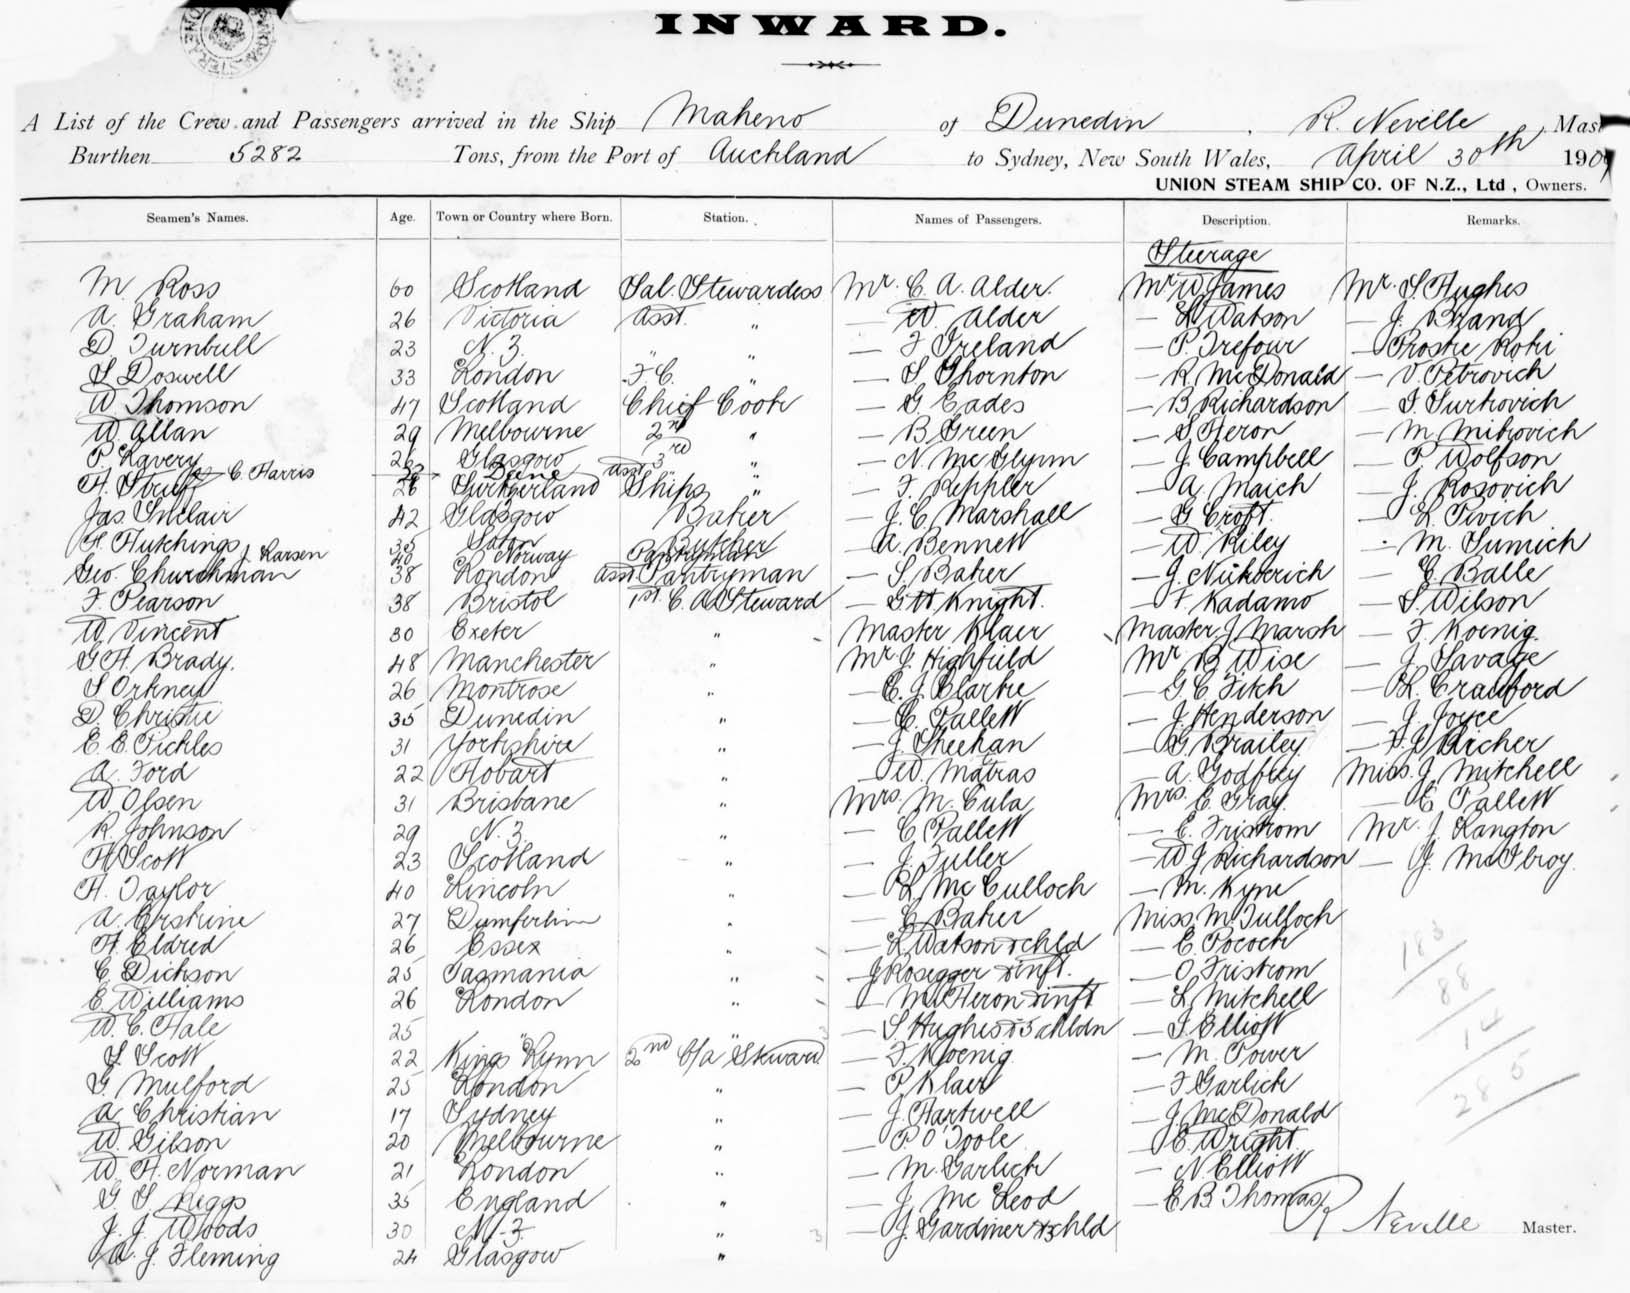 INWARD.
A List of the Crew and Passengers arrived in the Ship Maheno of Dunedin, R. Neville Mas
Burthen 5282 Tons, from the Port of Auckland to Sydney, New South Wales, April 30th 190
UNION STEAM SHIP CO. OF N.Z., Ltd, Owners.
Seamen's Names. Age. Town or Country where Born. Station. Names of Passengers. Description. Remarks.
Steerage
M. Ross 60 Scotland Sal. Stewardess Mr. C. A. Alder. Mr W James Mr. S Hughes
A. Graham 26 Victoria Asst. " — W. Alder — L Watson — J. Brand
D. Turnbull 23 N.Z. " " — F Ireland — P. Trefour — Prostie Kotri
S Doswell 33 London F.C. " — S Thornton — R McDonald — V. Petrovich
W. Thomson 47 Scotland Chief Cook — G. Eades — B Richardson — S. Surkovich
W. Allan 29 Melbourne 2nd " — B. Green — S Heron — M Mitrovich
P. Lavery 26 Glasgow 3rd " — N. McGlynn — J. Campbell — P Wolfson
C Harris Asst
H. 26 Ships " — F. Keppler — A. Maich — J. Rosovich
Jas. Sinclair 42 Glasgow Baker — J. C. Marshall — G Croft. — L Pivich
H. Hutchings 35 Butcher — A. Bennett — W. Riley — M. Sumich
J Larsen 40 Norway Pantryman
Geo. Churchman 38 London Asst. Pantryman — S. Baker — J. — C. Balle
F. Pearson 38 Bristol 1st. C. A Steward — G H Knight. — F. Kadamo — S. Wilson
W. Vincent 30 Exeter " Master Klaer Master J. Marsh — F. Koenig.
G. H. Brady. 48 Manchester " Mr J. Highfield Mr B Wise — J. Savage
S Orkney 26 Montrose " — E. J. Clarke — G C Fitch — L. Crawford
D. Christie 35 Dunedin " — C. Pallett — J. Henderson — J. Joyce
E. E. Pickles 31 Yorkshire " — J. Sheehan — G. Brailey — Richer
A. Ford 22 Hobart " — W. Matras — A. Godfrey Miss. J. Mitchell
W. Olsen 31 Brisbane " Mrs. M. Cula Mrs. E. Gray. — E Pallett
R. Johnson 29 N.Z. " — C Pallett — E. Fristrom Mr. J. Langton
H Scott 23 Scotland " — J. Fuller — W J Richardson — J. McIlroy.
H. Taylor 40 Lincoln " — L McCulloch — M. Kyne
A. Erskine 27 Dumferlin " — C Baker Miss. M. Tulloch
H. Eldred 26 Essex " — L Watson & chld — E. Pocock
C Dickson 25 Tasmania " J Rosegger & inft. — O. Fristrom
E Williams 26 London " — M. Heron & inft — L. Mitchell
W. C. Hale 25 " " — S Hughes & 3 chldn — S. Elliott
S. Scott 22 Kings Lynn 2nd C/a Steward — F. Koenig. — M. Power
G. Mulford 25 London " — P Klaer — F Garlick
A. Christian 17 Sydney " — J. Hartwell — J. McDonald
W. Gilson 20 Melbourne " — P. O'Toole — E. Wright
W. H. Norman 21 London " — M. Garlick — N Elliott
G. S. Riggs 35 England " — J. McLeod — E B Thomas
J. J. Woods 30 N.Z. " — J. Gardiner & 3 chld R Neville Master.
A. J. Fleming 24 Glasgow "
183
88
14
285